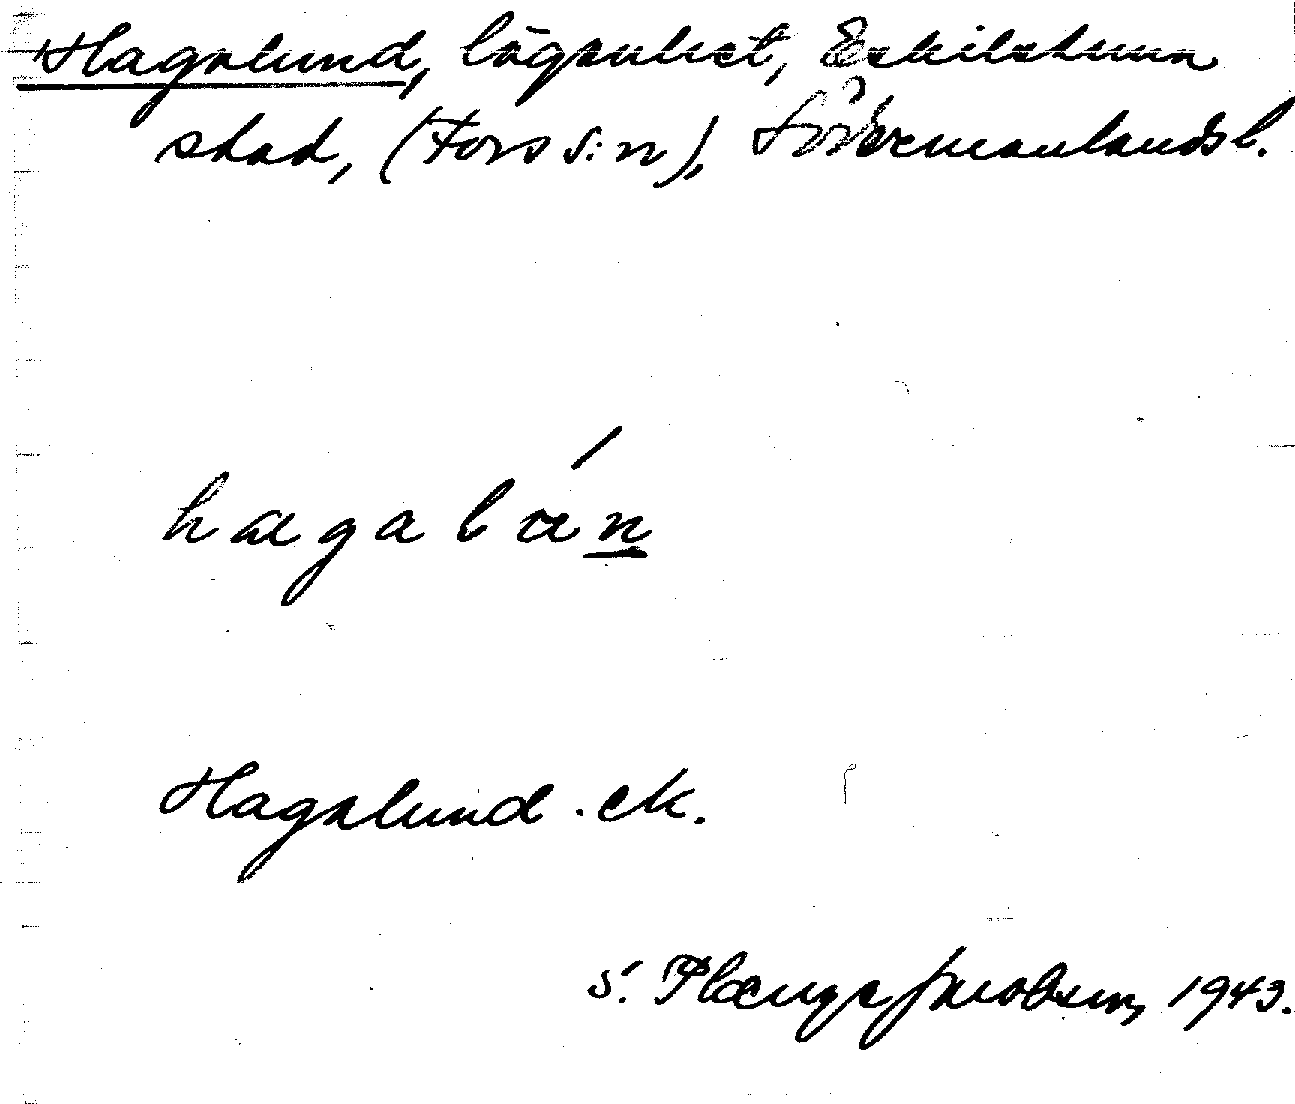 Hagalund, lägenhet, Eskilstuna
stad, (Fors s:n), Södermanlands l.
hagalún
Hagalund . ek.
S. Plænge Jacobson, 1943.